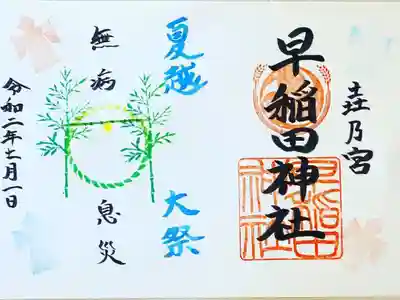 壵乃宮
早稲田神社
夏越 大祭
無病息災
令和二年七月一日